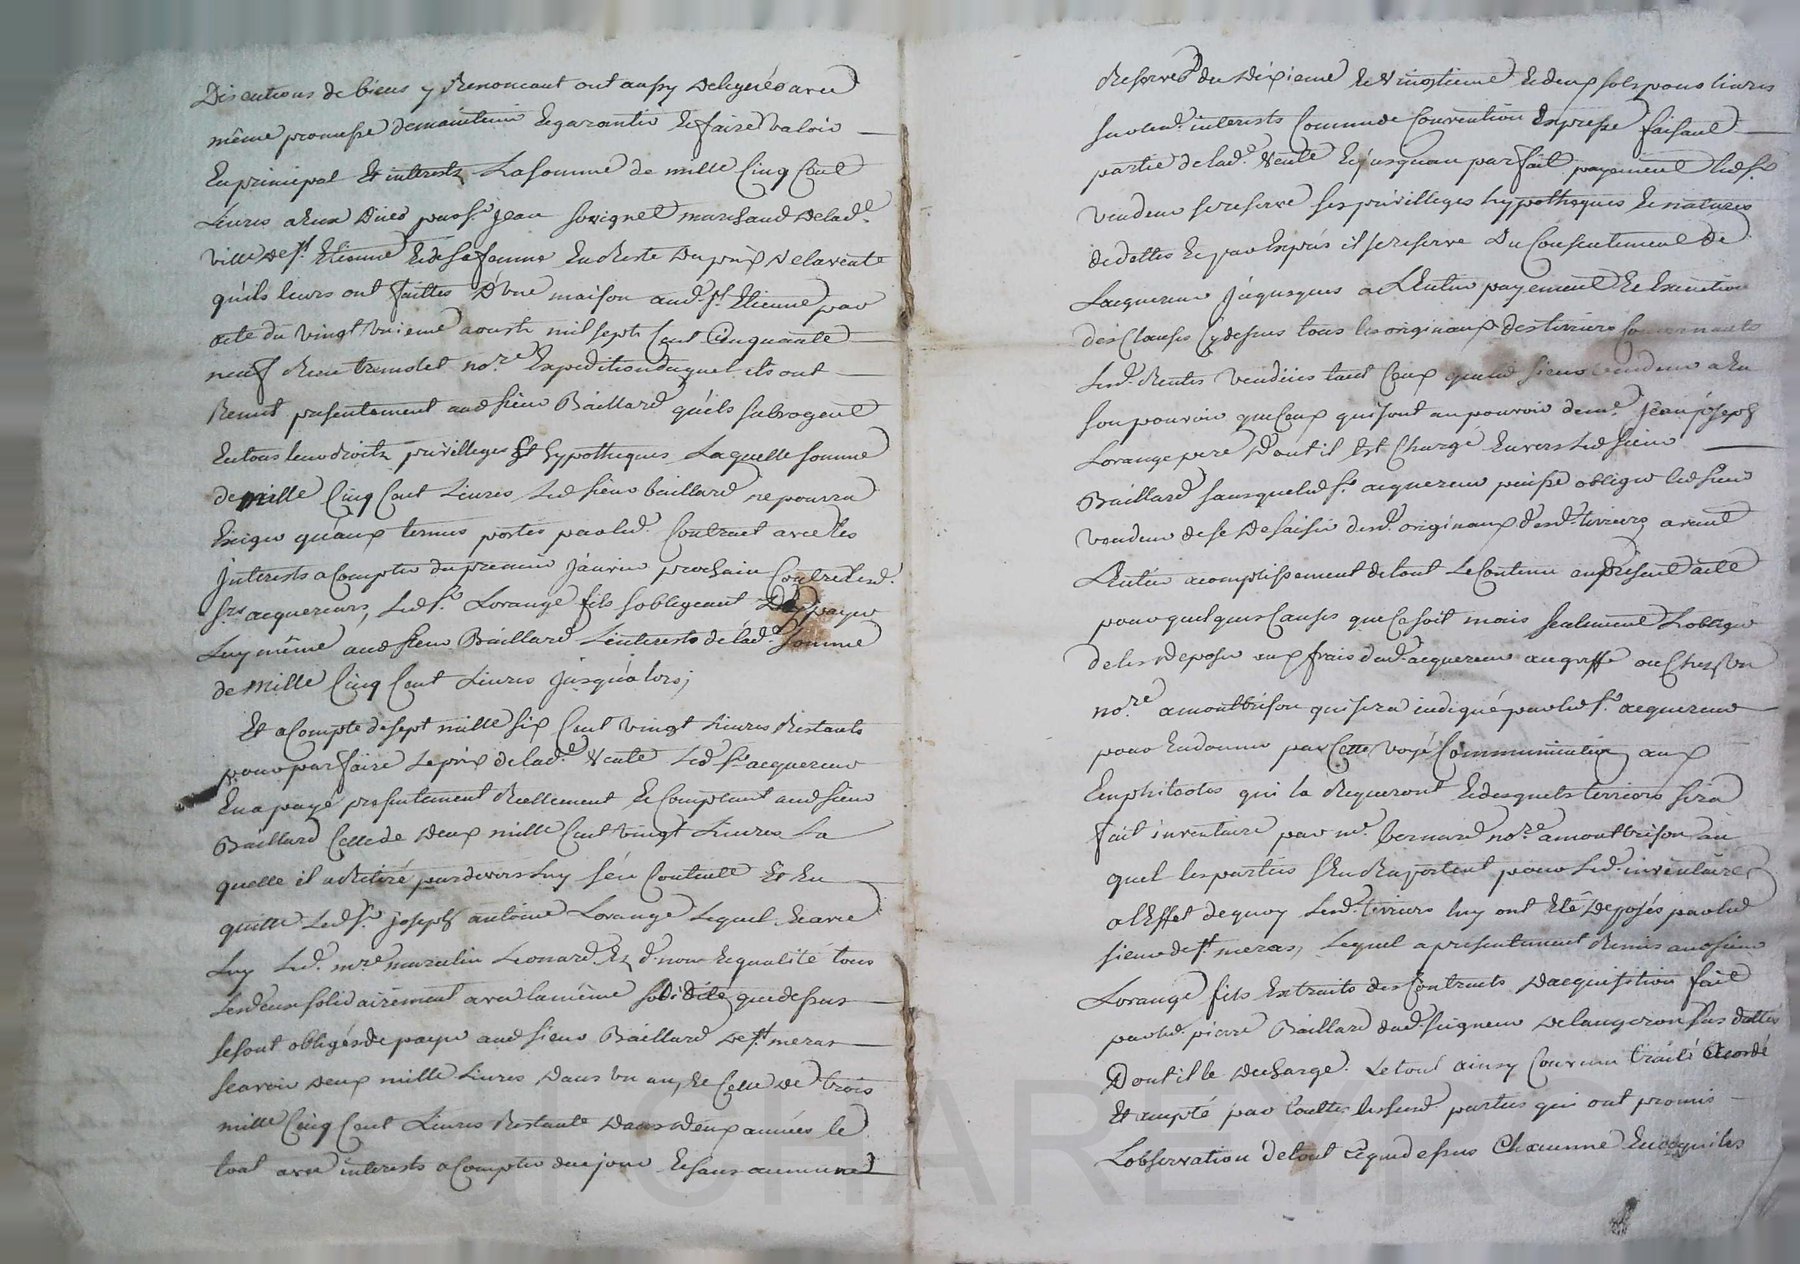 Discutions de biens y Renoncant ont aussy delegués avec
même promesse de maintenir Et garantir Et faire valoir
En principal Et interests La somme de mille Cinq Cent
Livres a Eux dües par Sr. Jean Sovignet marchand de lad.e
ville de St. Etienne Et de sa femme En Reste du prix de la vente
qu'ils leurs ont faittes d'Une maison aud. St. Etienne par
acte du vingt unieme aoust mil sept Cent Cinquante
neuf Reçu no.re Expedition duquel ils ont
Remit presentement aud sieur Baillard qu'ils subrogent
En tous leurs droits privilleges Et hypotheques Laquelle somme
de mille Cinq Cent Livres Led sieur baillard ne pourra
Exiger qu'aux termes portés par led. Contract avec les
Interests a Compter du premier Janvier prochain Contre lesd.
Srs acquereurs, Led Sr. Lorange fils sobligeant De payer
Luy même aud sieur Baillard Linterests de lad.e somme
de Mille Cinq Cent Livres jusqu'a lors;
Et a Compte de sept mille six Cent vingt Livres Restants
pour parfaire Le prix de lad.e Vente Led Sr. acquereur
En a payé presentement Reellement Et Comptant aud sieur
Baillard Celle de deux mille Cent vingt Livres La
quelle il a Retiré pardevers Luy s'en Contente Et En
quitte Led Sr. joseph antoine Lorange Lequel Et avec
Luy Led. mre. marcelin Leonard Esd. nom Et qualité tous
Les deux solidairement avec la même solidité que dessus
se sont obligés de payer aud sieur Baillard de St. meras
scavoir deux mille Livres dans un an, Et Celle de trois
mille Cinq Cent Livres Restante dans deux années le
tout avec interests a Compter du jour Et sans aucune
Reserve du dixieme Et vingtieme Et deux sols pour livres
sur lesd. interests Comme de Convention Expresse faisant
partie de lad.e Vente Et jusquau parfait payement led Sr.
vendeur se reserve ses privilleges hypotheques Et natures
de dettes Et par Exprés il se reserve Du Consentement de
Lacquereur jusques a LEntier payement Et Execution
des Clauses Cy dessus tous les originaux des terriers
Lesd. Rentes Vendües tant Ceux que led sieur vendeur a En
son pouvoir que Ceux qui sont au pouvoir de me. Jean joseph
Lorange pere Dont il Est Chargé Envers Led sieur
Baillard sans que led Sr. acquereur puisse obliger led sieur
vendeur de se desaisir desd. originaux desd. terriers avant
LEntier acomplissement de tout Le Contenu au present acte
pour quelques Causes que Ce soit mais seulement Lobliger
de les deposer aux frais dud. acquereur au greffe ou Chez Un
no.re a montbrison qui sera indiqué par led Sr. acquereur
pour En donner par Cette voye Communication aux
Emphiteotes qui la Requeront Et desquels terriers sera
fait inventaire par me. bernard no.re a montbrison au
quel les parties sEn Raportent pour Led. inventaire
a l'Effet de quoy Lesd. terriers luy ont Eté deposés par led
sieur de St. meras, Lequel a presentement Remis aud sieur
Lorange fils Extraits des Contracts dacquisition fait
par led. pierre Baillard dud. seigneur de langeron
Dont il le decharge. Le tout ainsy Convenu traité acordé
Et accepté par toutes les susd. parties qui ont promis
Lobservation de tout Ce que dessus Chacunne